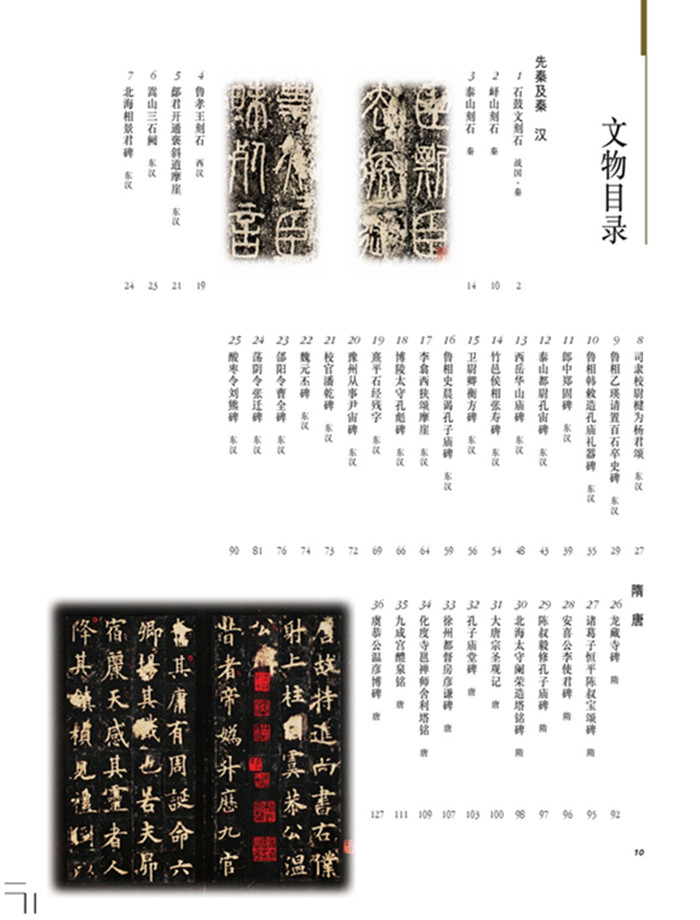 文物目录
先秦及秦 汉
1 石鼓文刻石 战国·秦 2
2 峄山刻石 秦 10
3 泰山刻石 秦 14
臣斯臣
4 鲁孝王刻石 西汉 19
5 鄐君开通褒斜道摩崖 东汉 21
6 嵩山三石阙 东汉 23
7 北海相景君碑 东汉 24
8 司隶校尉楗为杨君颂 东汉 27
9 鲁相乙瑛请置百石卒史碑 东汉 29
10 鲁相韩敕造孔庙礼器碑 东汉 35
11 郎中郑固碑 东汉 39
12 泰山都尉孔宙碑 东汉 43
13 西岳华山庙碑 东汉 48
14 竹邑侯相张寿碑 东汉 54
15 卫尉卿衡方碑 东汉 56
16 鲁相史晨谒孔子庙碑 东汉 59
17 李翕西狭颂摩崖 东汉 64
18 博陵太守孔彪碑 东汉 66
19 熹平石经残字 东汉 69
20 豫州从事尹宙碑 东汉 72
21 校官潘乾碑 东汉 73
22 魏元丕碑 东汉 74
23 郃阳令曹全碑 东汉 76
24 荡阴令张迁碑 东汉 81
25 酸枣令刘熊碑 东汉 90
隋 唐
26 龙藏寺碑 隋 92
27 诸葛子恒平陈叔宝颂碑 隋 95
28 安喜公李使君碑 隋 96
29 陈叔毅修孔子庙碑 隋 97
30 北海太守阚荣造塔铭碑 隋 98
31 大唐宗圣观记 唐 100
32 孔子庙堂碑 唐 103
33 徐州都督房彦谦碑 唐 107
34 化度寺邕禅师舍利塔铭 唐 109
35 九成宫醴泉铭 唐 111
36 虞恭公温彦博碑 唐 127
唐故特进尚書右僕
射上柱國虞恭公温
公
昔者帝嬀升歷九官
其庸有周誕命六
卿揚其職也若夫昴
宿麗天感其靈者人
降其禎見禮
10